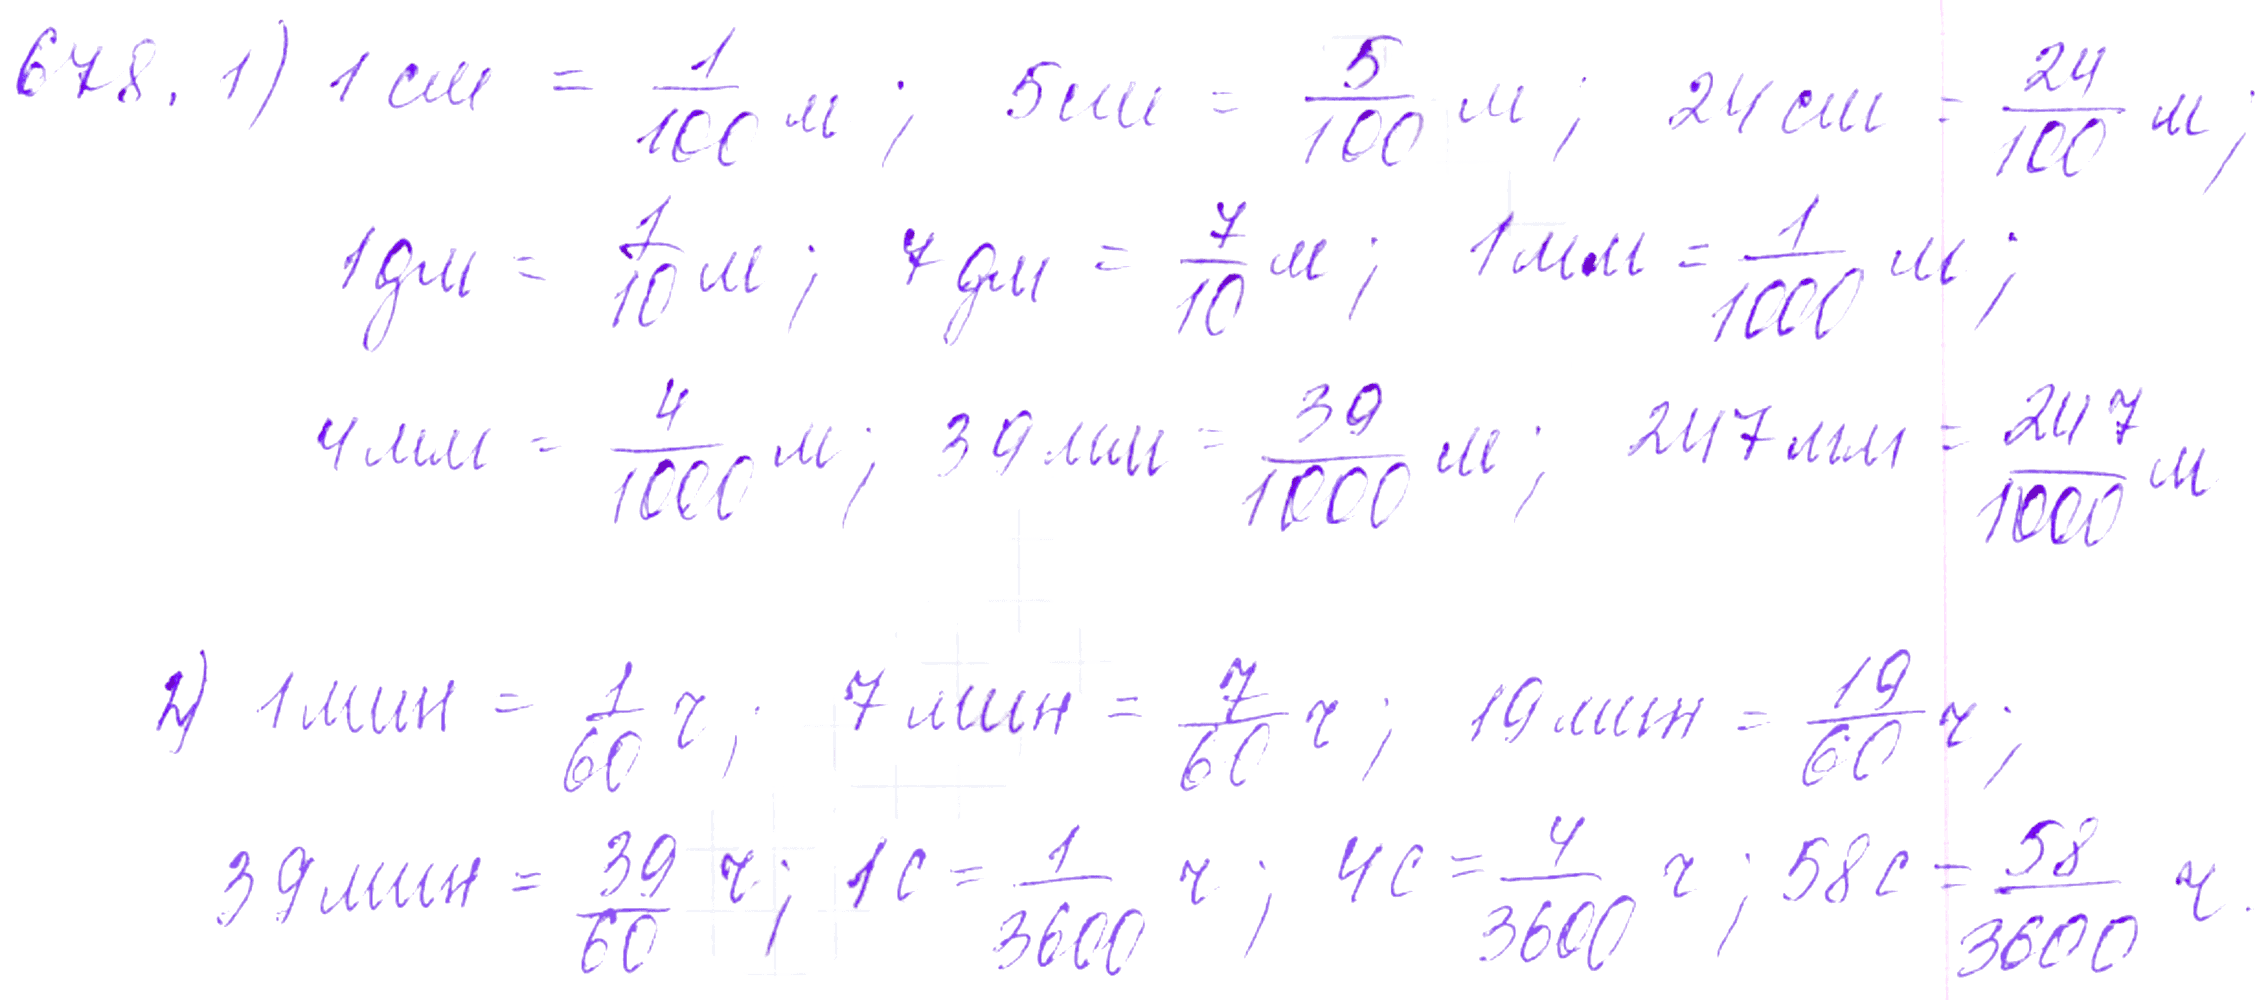 678. 1) 1 см = 1/100 м; 5 см = 5/100 м; 24 см = 24/100 м;
1 дм = 1/10 м; 7 дм = 7/10 м; 1 мм = 1/1000 м;
4 мм = 4/1000 м; 39 мм = 39/1000 м; 247 мм = 247/1000 м
2) 1 мин = 1/60 ч; 7 мин = 7/60 ч; 19 мин = 19/60 ч;
39 мин = 39/60 ч; 1 с = 1/3600 ч; 4 с = 4/3600 ч; 58 с = 58/3600 ч.